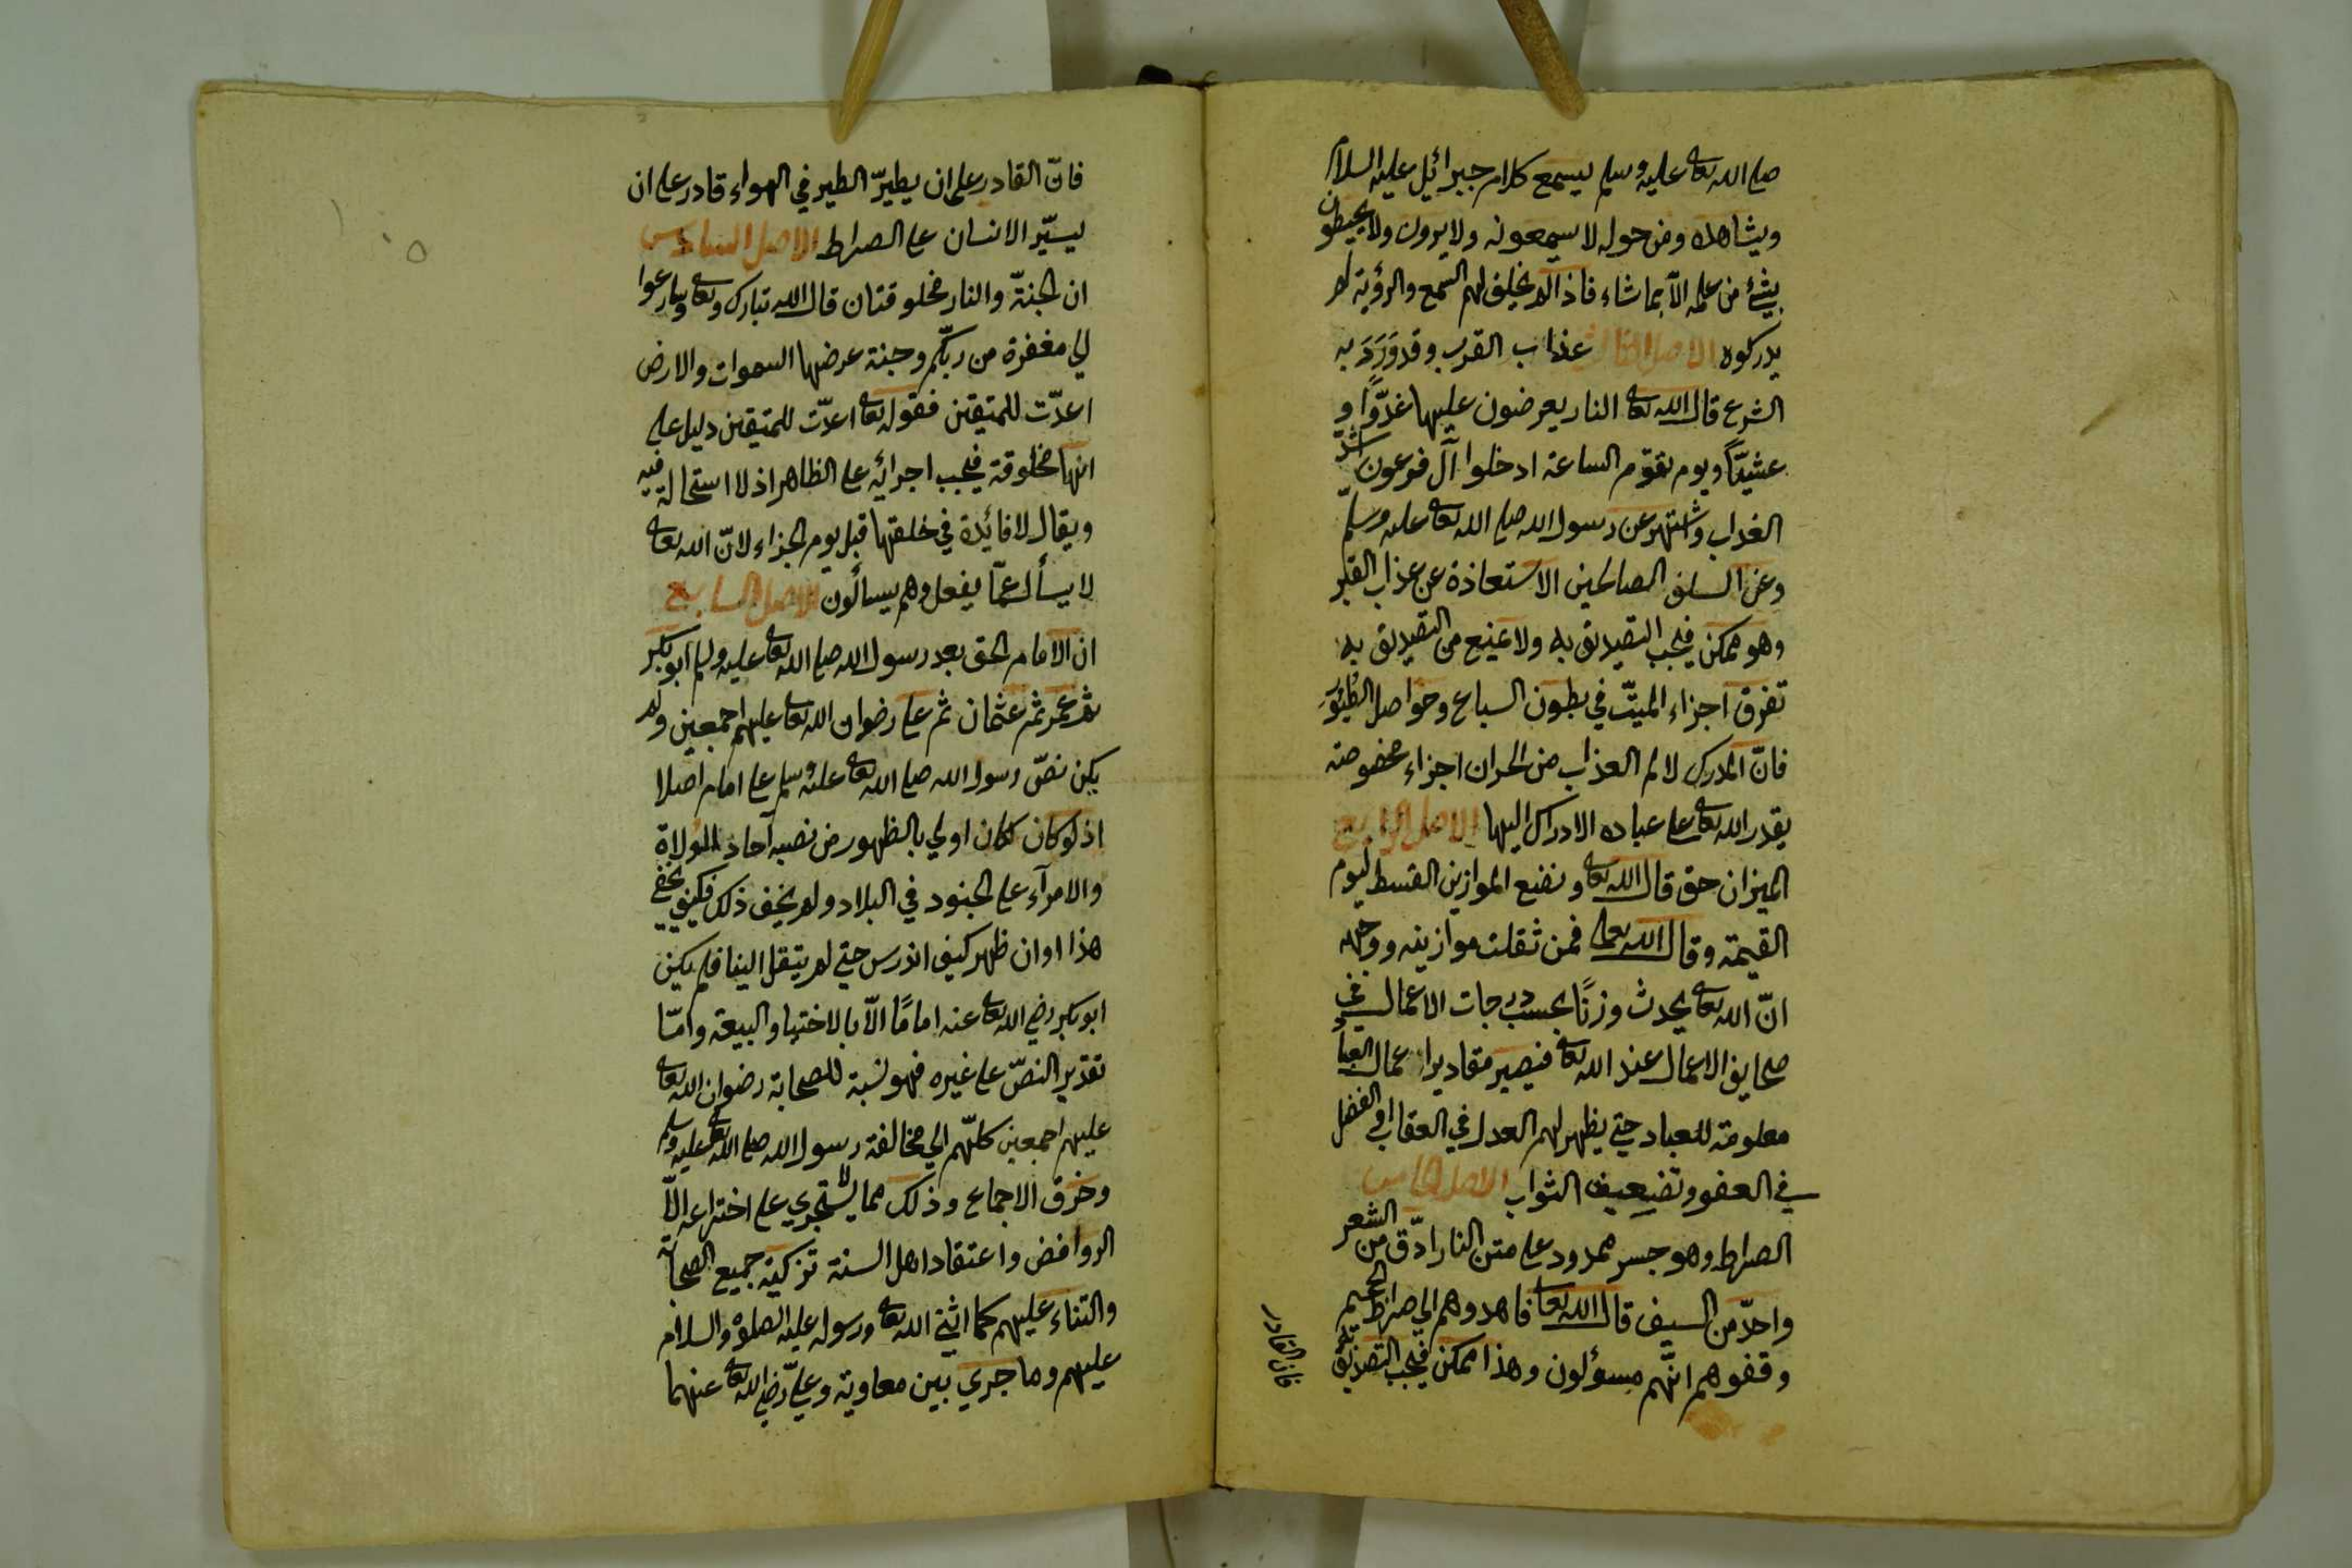 صلى الله تعالى عليه وسلم يسمع كلام جبرائيل عليه السلام
ويشاهده ومن حوله لا يسمعونه ولا يرونه ولا يحيطون
بشئ من علمه الا بما شاء فاذا لم يخلق لهم السمع والرؤية لم
يدركوه الاصل الثالث عذاب القبر وقد وَرَدَ به
الشرع قال الله تعالى النار يعرضون عليها غدوًّا و
عشيًّا ويوم تقوم الساعة ادخلوا آل فرعون اشدّ
العذاب واشتهر عن رسول الله صلى الله تعالى عليه وسلّم
وعن السلف الصالحين الاستعاذة عن عذاب القبر
وهو ممكن فيجب التصديق به ولا يمنع من التصديق به
تفرق اجزاء الميّت في بطون السباع وحواصل الطيور
فانّ المدرك لالم العذاب من الحيوان اجزاء مخصوصة
يقدر الله تعالى على عباده الادراك اليها الاصل الرابع
الميزان حق قال الله تعالى ونضع الموازين القسط ليوم
القيمة وقال الله تعالى فمن ثقلت موازينه ووجهه
انّ الله تعالى يحدث وزنًا بحسب درجات الاعمال في
صحايف الاعمال عند الله تعالى فيصير مقادير اعمال العباد
معلومة للعباد حتى يظهر لهم العدل في العقاب او الفضل
في العفو وتضعيف الثواب الاصل الخامس
الصراط وهو جسر ممدود على متن النار ادّق من الشعر
واحدّ من السيف قال الله تعالى فاهدوهم الى صراط الجحيم
وقفوهم انّهم مسؤلون وهذا ممكن فيجب التصديق به
فان القادر
فانّ القادر على ان يطيّر الطير في الهواء قادر على ان
يسيّر الانسان على الصراط الاصل السادس
ان الجنّة والنار مخلوقتان قال الله تبارك وتعالى وسارعوا
الي مغفرة من ربكّم وجنة عرضها السموات والارض
اعدّت للمتقين فقوله تعالى اعدّت للمتقين دليل على
انها مخلوقة فيجب اجرائه على الظاهر اذ لا استحالة فيه
ويقال لا فائدة في خلقتها قبل يوم الجزاء لانّ الله تعالى
لا يسأل عمّا يفعل وهم يسألون الاصل السابع
ان الامام الحق بعد رسول الله صلى الله تعالى عليه وسلم ابو بكر
ثم عمر ثم عثمان ثم على رضوان الله تعالى عليهم اجمعين ولم
يكن نصّ رسول الله صلى الله تعالى عليه وسلم على امام اصلا
اذ لو كان لكان اولي بالظهور من نصبه آحاد الولاة
والامرآء على الجنود في البلاد ولم يخف ذلك فكيف يخفى
هذا او ان ظهر كيف اندرس حتى لم ينقل الينا فلم يكن
ابو بكر رضي الله تعالى عنه امامًا الّا بالاختيار والبيعة وامّا
تقدير النصّ على غيره فهو نسبة للصحابة رضوان الله تعالى
عليهم اجمعين كلّهم الي مخالفة رسول الله صلى الله تعالى عليه وسلم
وخرق الاجماع وذلك مما لا يستجري على اختراعه الّا
الروافض واعتقاد اهل السنة تزكية جميع الصحابة
والثناء عليهم كما اثنى الله تعالى ورسوله عليه الصلوة والسلام
عليهم وما جري بين معاوية وعليّ رضي الله تعالى عنهما